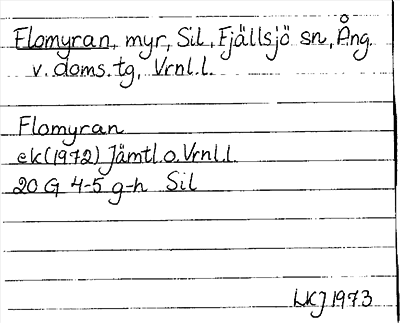 Flomyran, myr, Sil, Fjällsjö sn, Ång.
v. doms.tg, Vrnl.l.
Flomyran
ek(1972) Jämtl.o.Vrnl.l.
20 G 4-5 g-h Sil
LKJ 1973